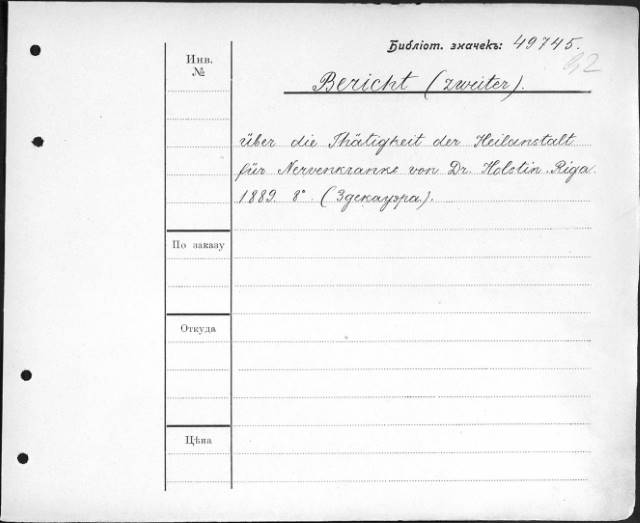 Библіот. значекъ: 49745.
92
Инв.
№
Bericht (zweiter).
über die Thätigkeit der Heilanstalt
für Nervenkranke von Dr. Holstin. Riga.
1889. 8° (Здекауэра.).
По заказу
Откуда
Цѣна